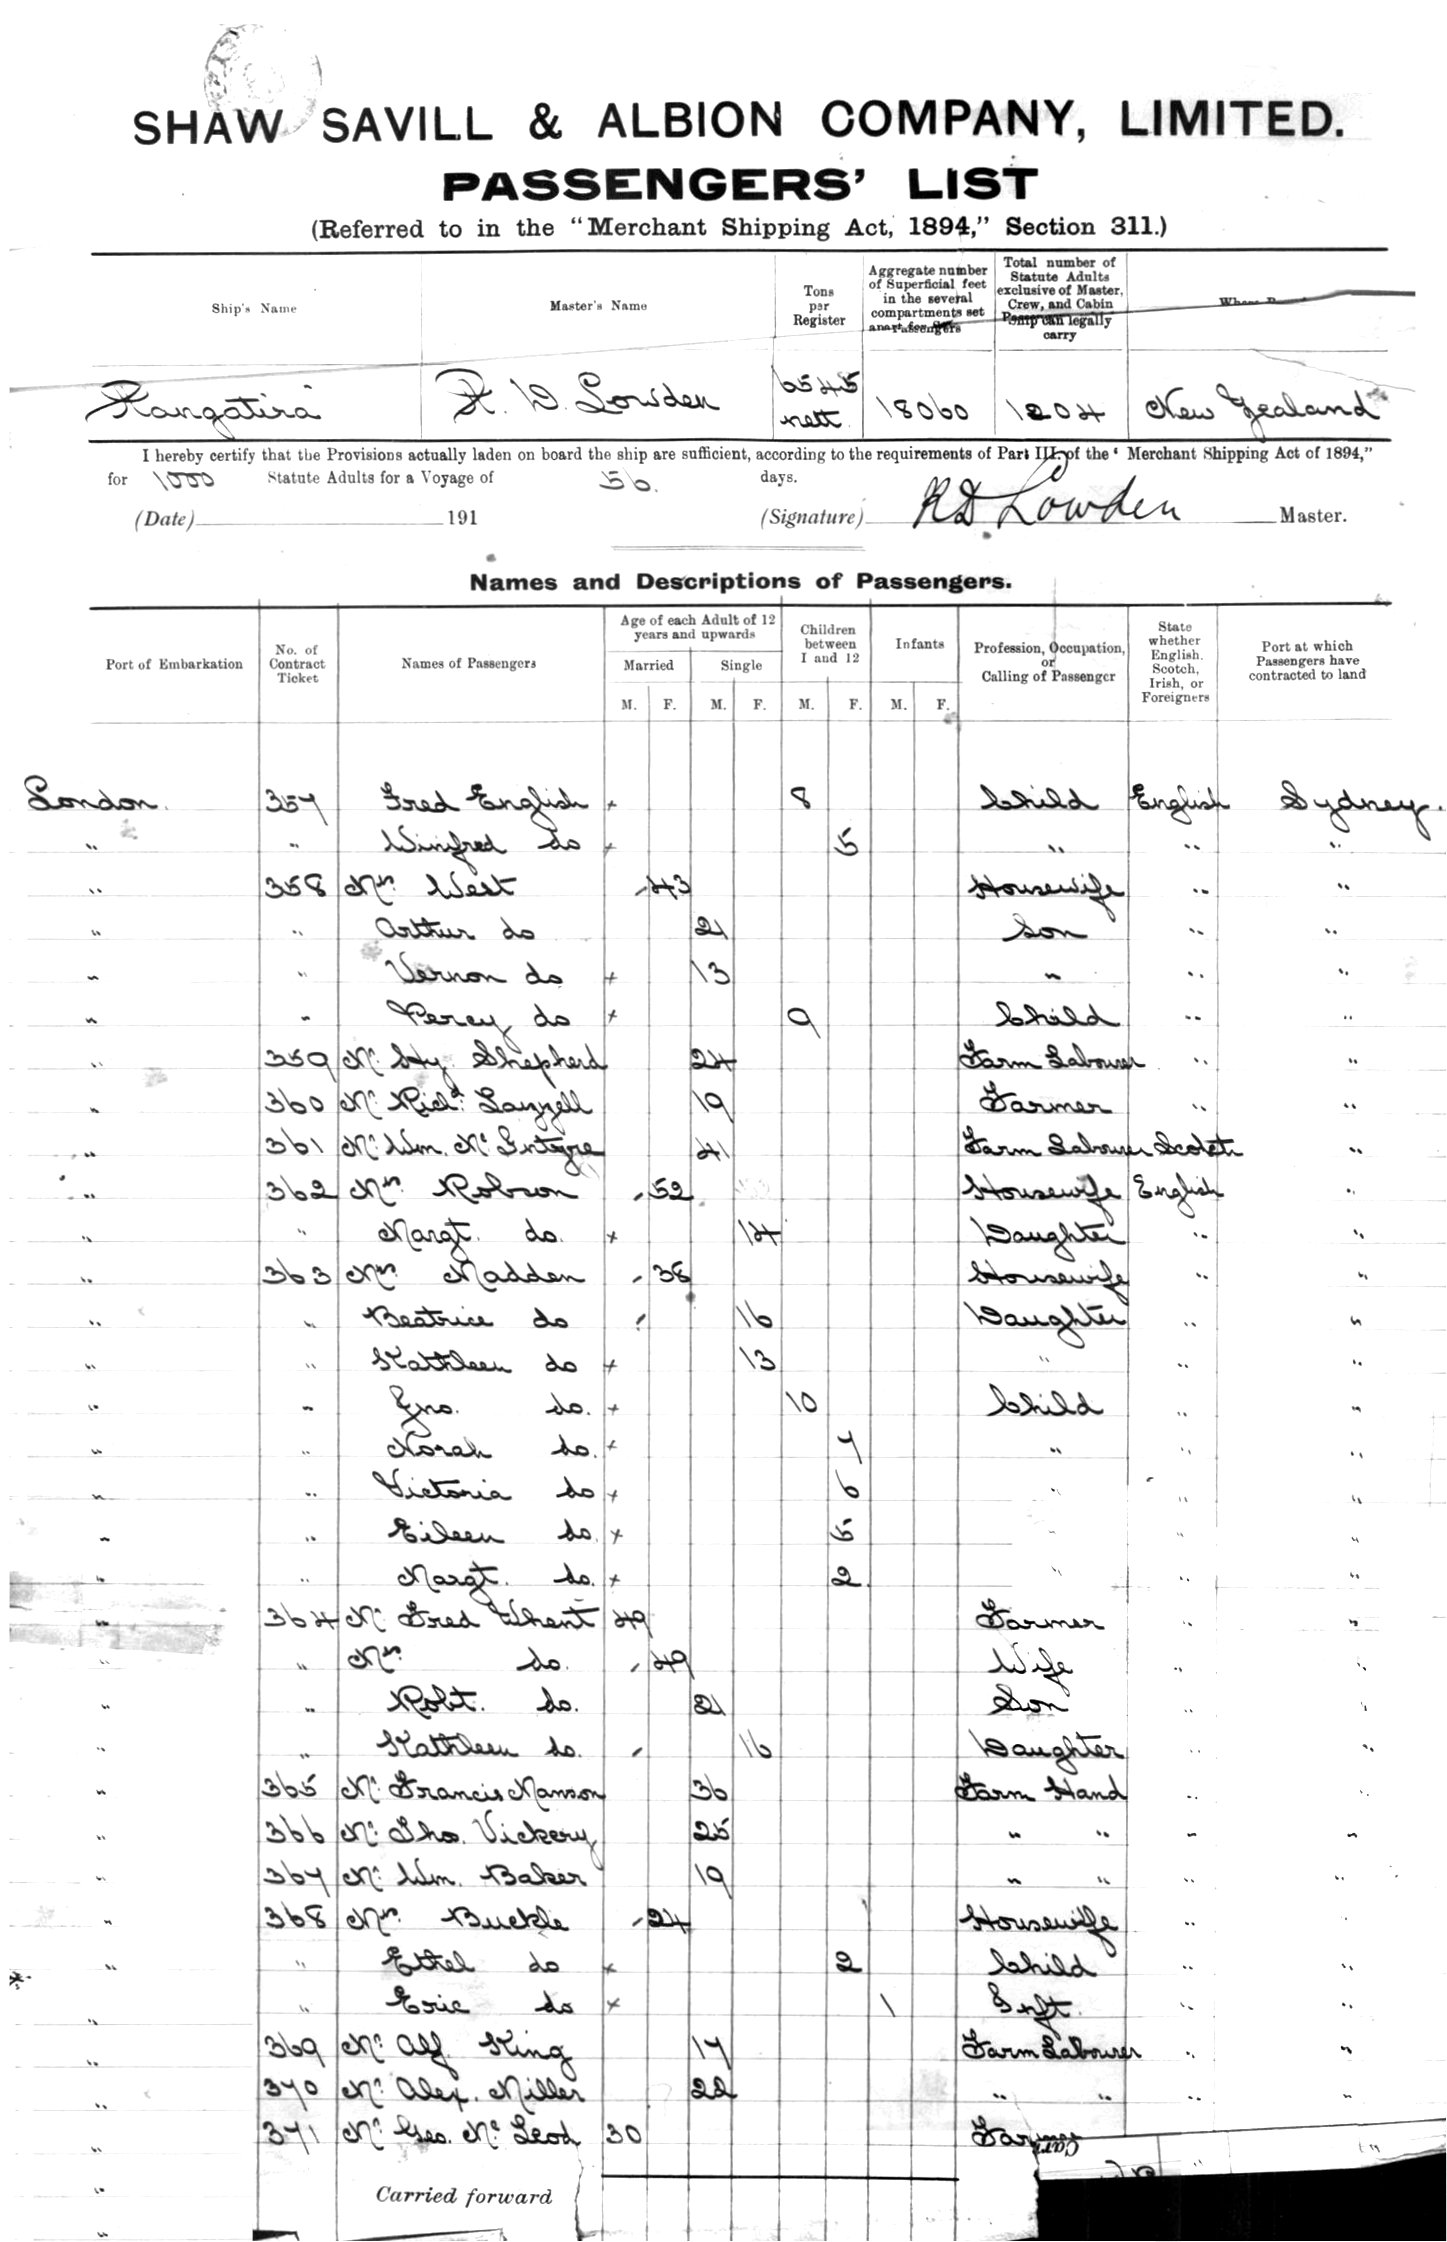 SHAW SAVILL & ALBION COMPANY, LIMITED.
PASSENGERS' LIST
(Referred to in the "Merchant Shipping Act, 1894," Section 311.)
Ship's Name Master's Name Tons per Register Aggregate number of Superficial feet in the several compartments set apart for Passengers Total number of Statute Adults exclusive of Master, Crew, and Cabin Ship can legally carry Where
"Rangatira" R. D. Lowden 6545 nett. 18060 1204 New Zealand
I hereby certify that the Provisions actually laden on board the ship are sufficient, according to the requirements of Part III. of the "Merchant Shipping Act of 1894,"
for 1000 Statute Adults for a Voyage of 56. days.
(Date) 191 (Signature) R D Lowden Master.
Names and Descriptions of Passengers.
Port of Embarkation No. of Contract Ticket Names of Passengers Age of each Adult of 12 years and upwards Children between 1 and 12 Infants Profession, Occupation, or Calling of Passenger State whether English, Scotch, Irish, or Foreigners Port at which Passengers have contracted to land
Married Single
M. F. M. F. M. F. M. F.
London. 357 Fred English x 8 Child English Sydney.
" " Winifred do x 5 " " "
" 358 Mrs West 43 Housewife " "
" " Arthur do 21 Son " "
" " Vernon do x 13 " " "
" " Percy do x 9 Child " "
" 359 Mr Hy. Shepherd 24 Farm Labourer " "
" 360 Mr Richd. Lazzell 19 Farmer " "
" 361 Mr Wm. Mc Intyre 41 Farm Labourer Scotch "
" 362 Mrs Robson 52 Housewife English "
" " Margt. do. x 14 Daughter " "
" 363 Mrs Madden 38 Housewife " "
" " Beatrice do 16 Daughter " "
" " Kathleen do x 13 " " "
" " Jno. do. x 10 Child " "
" " Norah do. x 7 " " "
" " Victoria do x 6 " " "
" " Eileen do. x 5 " " "
" " Margt. do. x 2 " " "
" 364 Mr Fred Whent 49 Farmer " "
" " Mrs do. 49 Wife " "
" " Robt. do. 21 Son " "
" " Kathleen do. 16 Daughter " "
" 365 Mr Francis Manson 36 Farm Hand " "
" 366 Mr Tho. Vickery 25 " " " "
" 367 Mr Wm. Baker 19 " " " "
" 368 Mrs Buckle 24 Housewife " "
" " Ethel do x 2 Child " "
" " Eric do x 1 Inft. " "
" 369 Mr Alf. King 17 Farm Labourer " "
" 370 Mr Alex. Miller 22 " " " "
" 371 Mr Geo. Mc Leod 30 Farmer
Carried forward